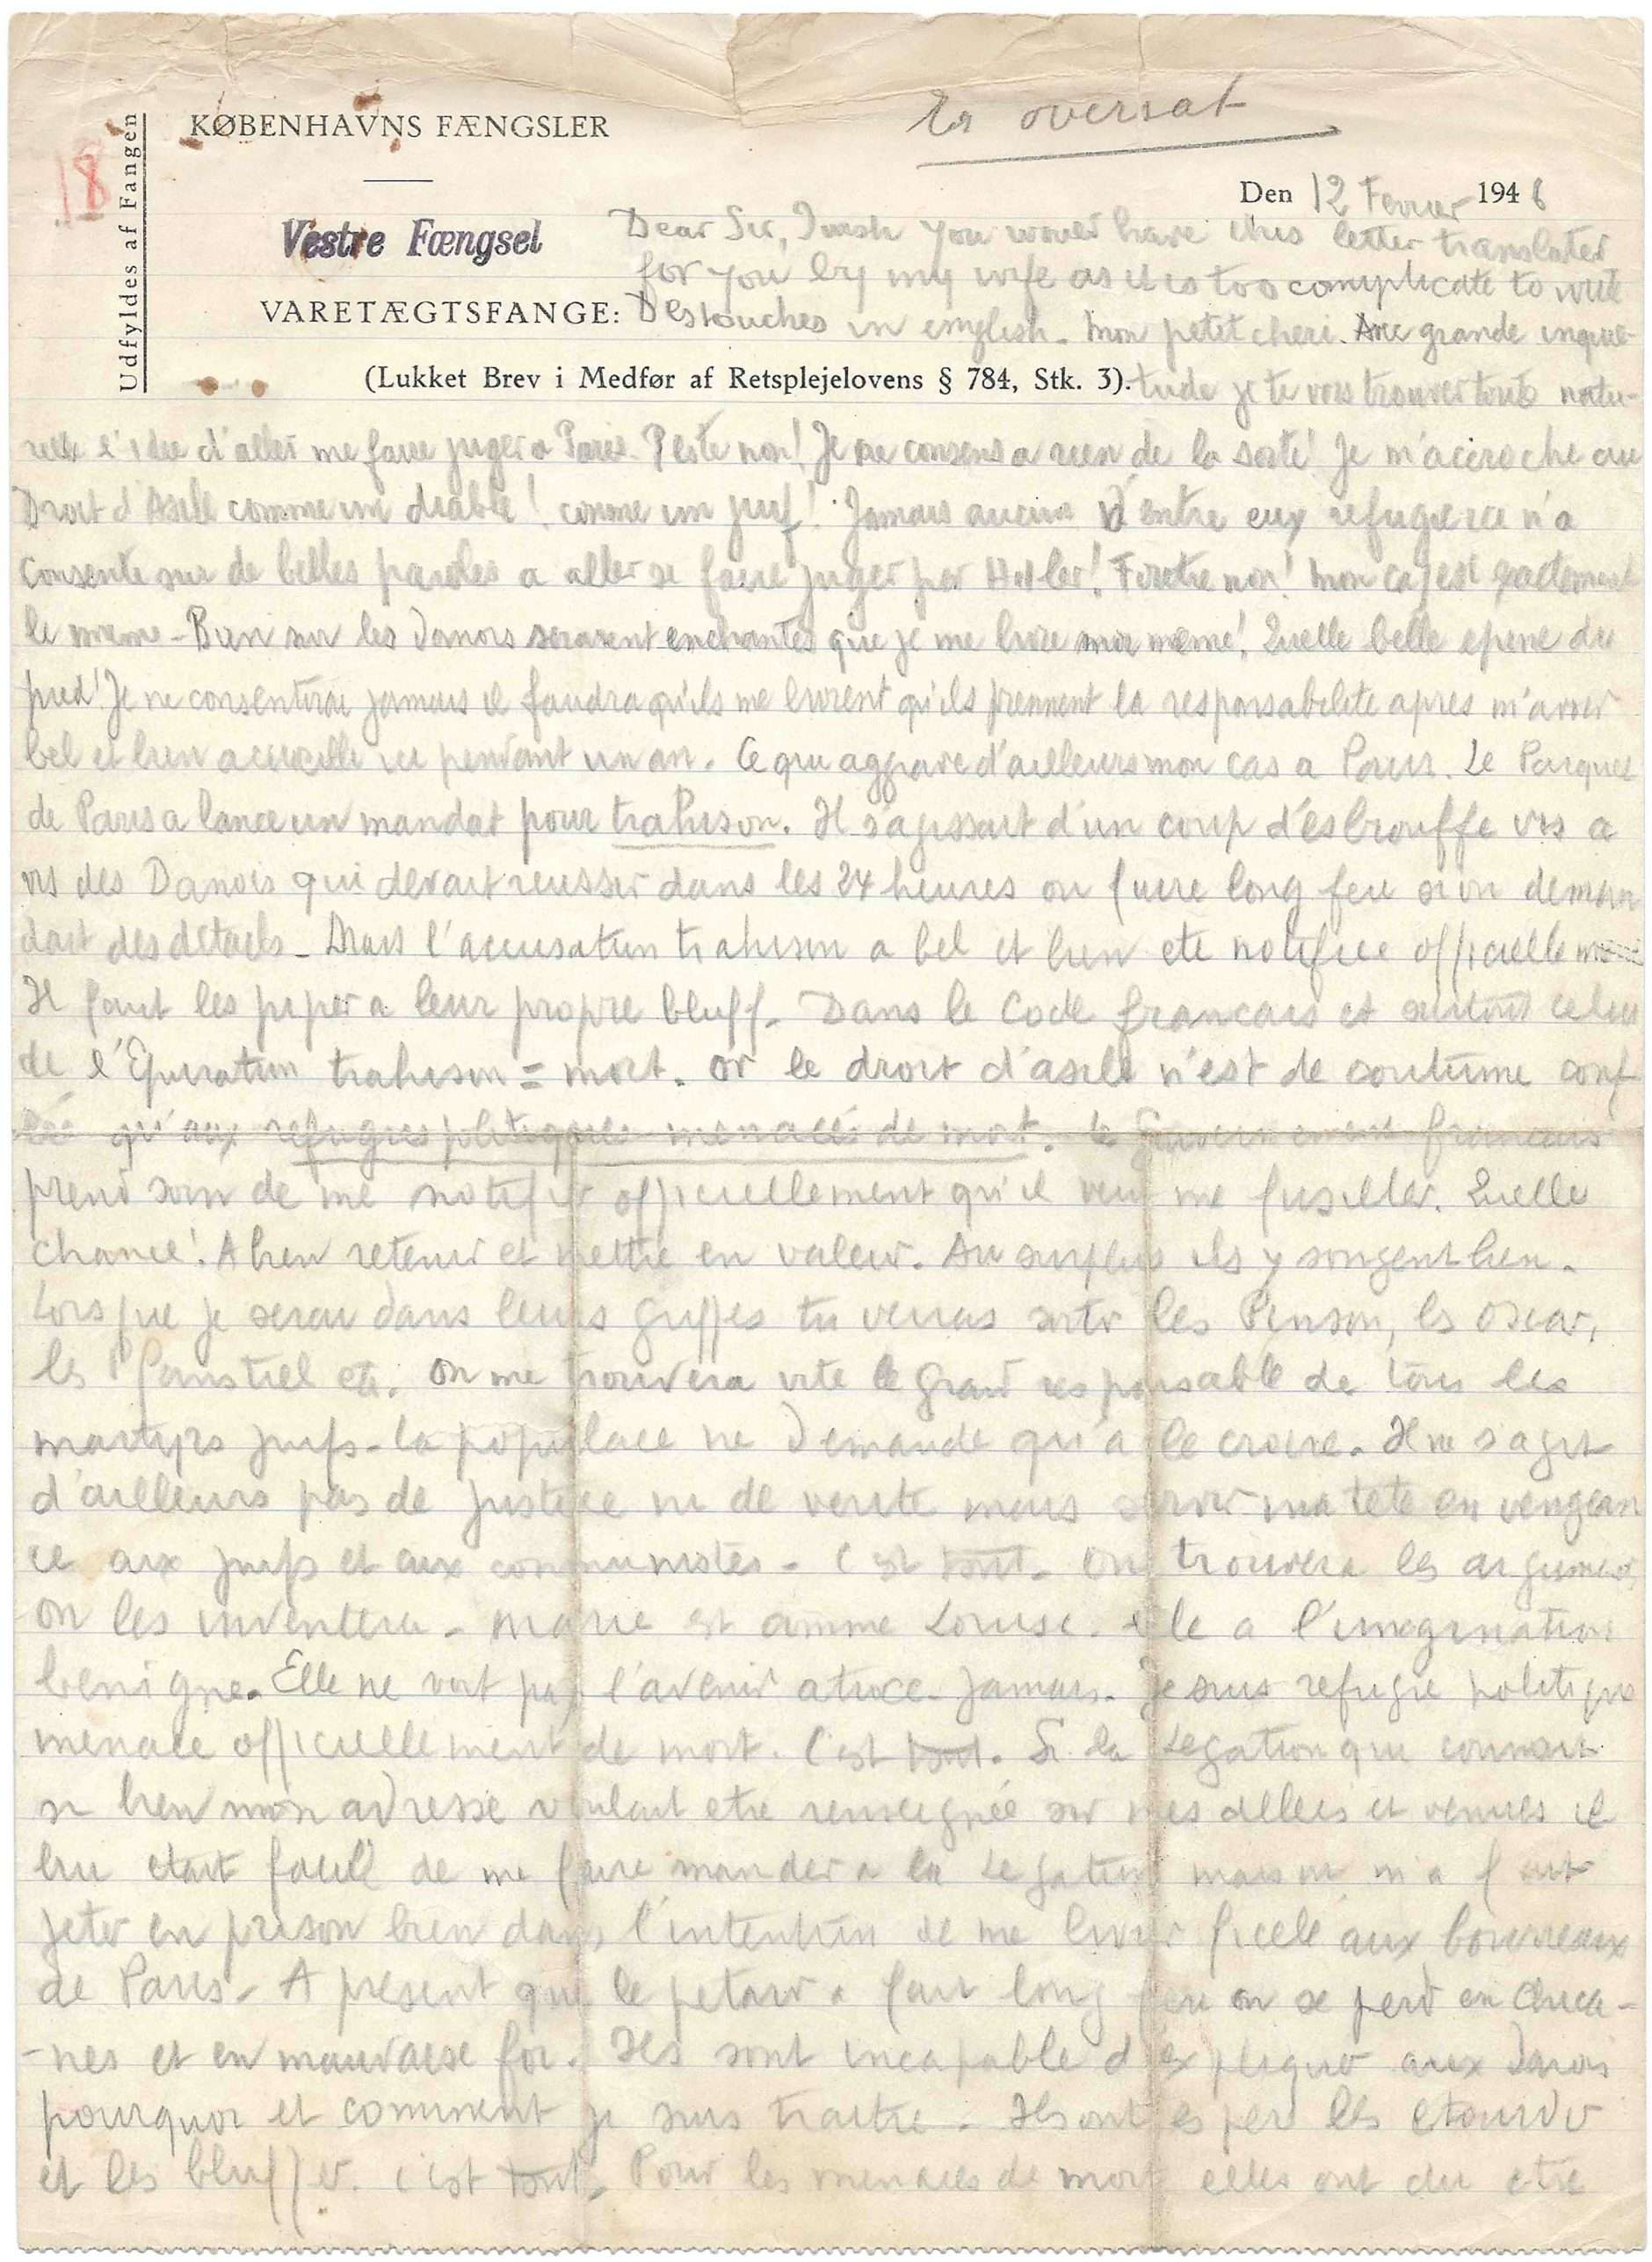 Er oversat
KØBENHAVNS FÆNGSLER
Udfyldes af Fangen
18
Den 12 Fevrier 1946
Vestre Fængsel
Dear Sir, I wish you would have this letter translated
for you by my wife as it is too complicate to write
VARETÆGTSFANGE: Destouches in english. Mon petit cheri. Avec grande inquie-
(Lukket Brev i Medfør af Retsplejelovens § 784, Stk. 3). tude je te vois trouver toute natu-
relle l'idee d'aller me faire juger a Paris. Peste non! Je ne consens a rien de la sorte! Je m'accroche au
Droit d'Asile comme un diable! comme un juif! Jamais aucun d'entre eux refugie ici n'a
consenti sur de belles paroles a aller se faire juger par Hitler! Foutre non! mon cas est exactement
le meme - Bien sur les Danois seraient enchantés que je me livre moi même! Quelle belle epine du
pied! Je ne consentirai jamais il faudra qu'ils me livrent qu'ils prennent la responsabilite apres m'avoir
bel et bien accueilli ici pendant un an. Ce qui aggrave d'ailleurs mon cas a Paris. Le Parquet
de Paris a lance un mandat pour trahison. Il s'agissait d'un coup d'esbrouffe vis a
vis des Danois qui devait reussir dans les 24 heures ou faire long feu si on deman
dait des détails - Mais l'accusation trahison a bel et bien ete notifiee officiellement
Il faut les piper a leur propre bluff. Dans le Code francais et surtout celui
de l'Epuration trahison = mort. or le droit d'asile n'est de coutume conf
éré qu'aux refugies politiques menacés de mort. le Gouvernement francais
prend soin de me notifier officiellement qu'il veut me fusiller. Quelle
chance! A bien retenir et mettre en valeur. Au surplus ils y songent bien.
Lorsque je serai dans leurs griffes tu verras sortir les Pinson, les Oscar,
les etc. On me trouvera vite le grand responsable de tous les
martyrs juifs - la populace ne demande qu'à le croire. Il ne s'agit
d'ailleurs pas de justice ni de verite mais servir ma tete en vengean
ce aux juifs et aux communistes - C'est tout. On trouvera les arguments
on les inventera - Marie est comme Louise. elle a l'imagination
benigne. Elle ne voit pas l'avenir atroce. Jamais. Je suis refugie politique
menace officiellement de mort. C'est tout. Si la Legation qui connait
si bien mon adresse voulait etre renseignée sur mes allees et venues il
lui etait facile de me faire mander a la Legation mais on m'a fait
jeter en prison bien dans l'intention de me livrer ficelé aux bourreaux
de Paris - A present que le petard a fait long feu on se perd en chica-
-nes et en mauvaise foi. Ils sont incapable d'expliquer aux Danois
pourquoi et comment je suis traitre. Ils ont espere les etourdir
et les bluffer. c'est tout. Pour les menaces de mort elles ont du etre